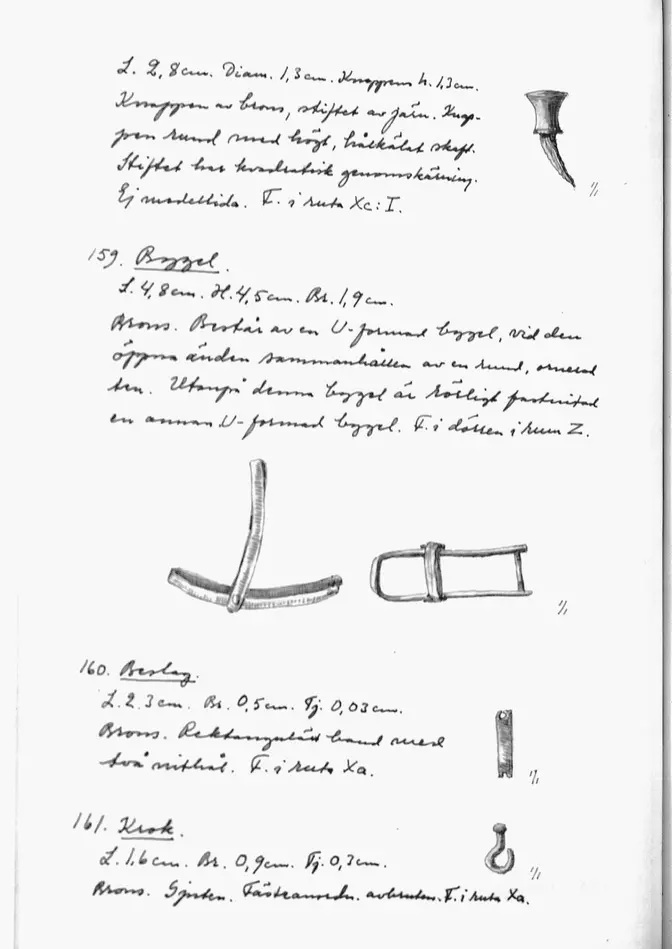 L. 2,8 cm. Diam. 1,3 cm. Knappens h. 1,3 cm.
Knappen av brons, stiftet av järn. Knap-
pen rund med högt, hålkälat skaft.
Stiftet har kvadratisk genomskärning.
Ej medeltida. F. i ruta Xc: I.
1/1
159. Bygel.
L. 4,8 cm. H. 4,5 cm. Br. 1,9 cm.
Brons. Består av en U-formad bygel, vid den
öppna änden sammanhållen av en rund, ornerad
ten. Utanpå denna bygel är rörligt fastnitad
en annan U-formad bygel. F. i dörren i rum Z.
1/1
160. Beslag.
L. 2,3 cm. Br. 0,5 cm. Tj. 0,03 cm.
Brons. Rektangulärt band med
två nithål. F. i ruta Xa.
1/1
161. Krok.
L. 1,6 cm. Br. 0,9 cm. Tj. 0,3 cm.
1/1
Brons. Gjuten. Fästeanordn. avbruten. F. i ruta Xa.